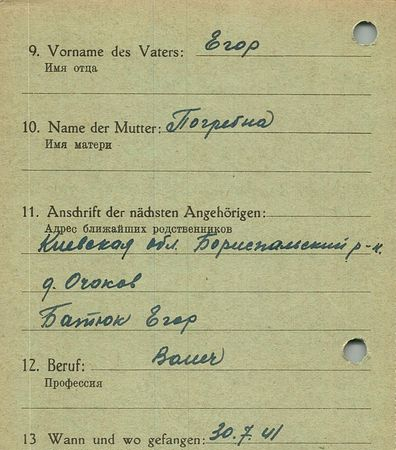 9. Vorname des Vaters: Егор
Имя отца
10. Name der Mutter: Погребна
Имя матери
11. Anschrift der nächsten Angehörigen:
Адрес ближайших родственников
Киевская обл. Бориспальский р-н.
д. Очоков
Батюк Егор
12. Beruf: Bauer
Профессия
13 Wann und wo gefangen: 30.7.41